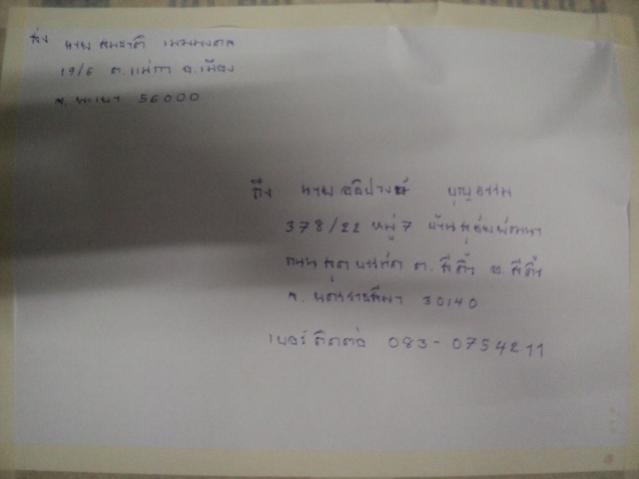 ส่ง นาย สมชาติ
19/6 ต.แม่กา อ.เมือง
จ.พะเยา 56000
ถึง นาย บุญธรรม
378/22 หมู่ 7 บ้าน
ถนน ต.สีคิ้ว อ.สีคิ้ว
จ.นครราชสีมา 30140
เบอร์ติดต่อ 083-0754211